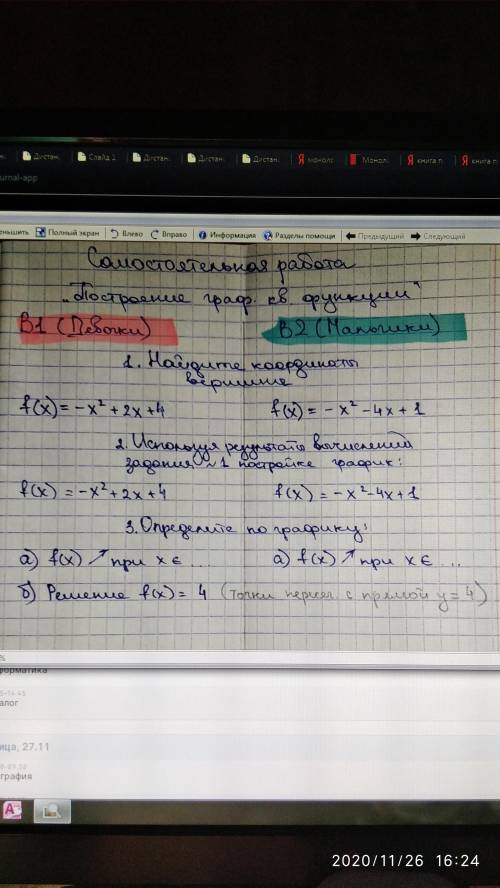 Дистан. Слайд 2 Дистан. Дистан. Дистан. Я монол Монол Я книга п Я книга п
urnal-app
Полный экран Влево Вправо Информация Разделы помощи Предыдущий Следующий
Самостоятельная работа
„Построение граф. кв. функции"
В1 (Девочки) В2 (Мальчики)
1. Найдите координаты
вершины
f(x) = -x² + 2x + 4 f(x) = -x² - 4x + 1
2. Используя результаты вычислений
задания №1 постройте график:
f(x) = -x² + 2x + 4 f(x) = -x² - 4x + 1
3. Определите по графику:
а) f(x) ↗ при x ∈ ... а) f(x) ↗ при x ∈ ...
б) Решение f(x) = 4 (точки пересеч. с прямой y = 4)
%
форматика
5-14.45
алог
ица, 27.11
графия
2020/11/26 16:24